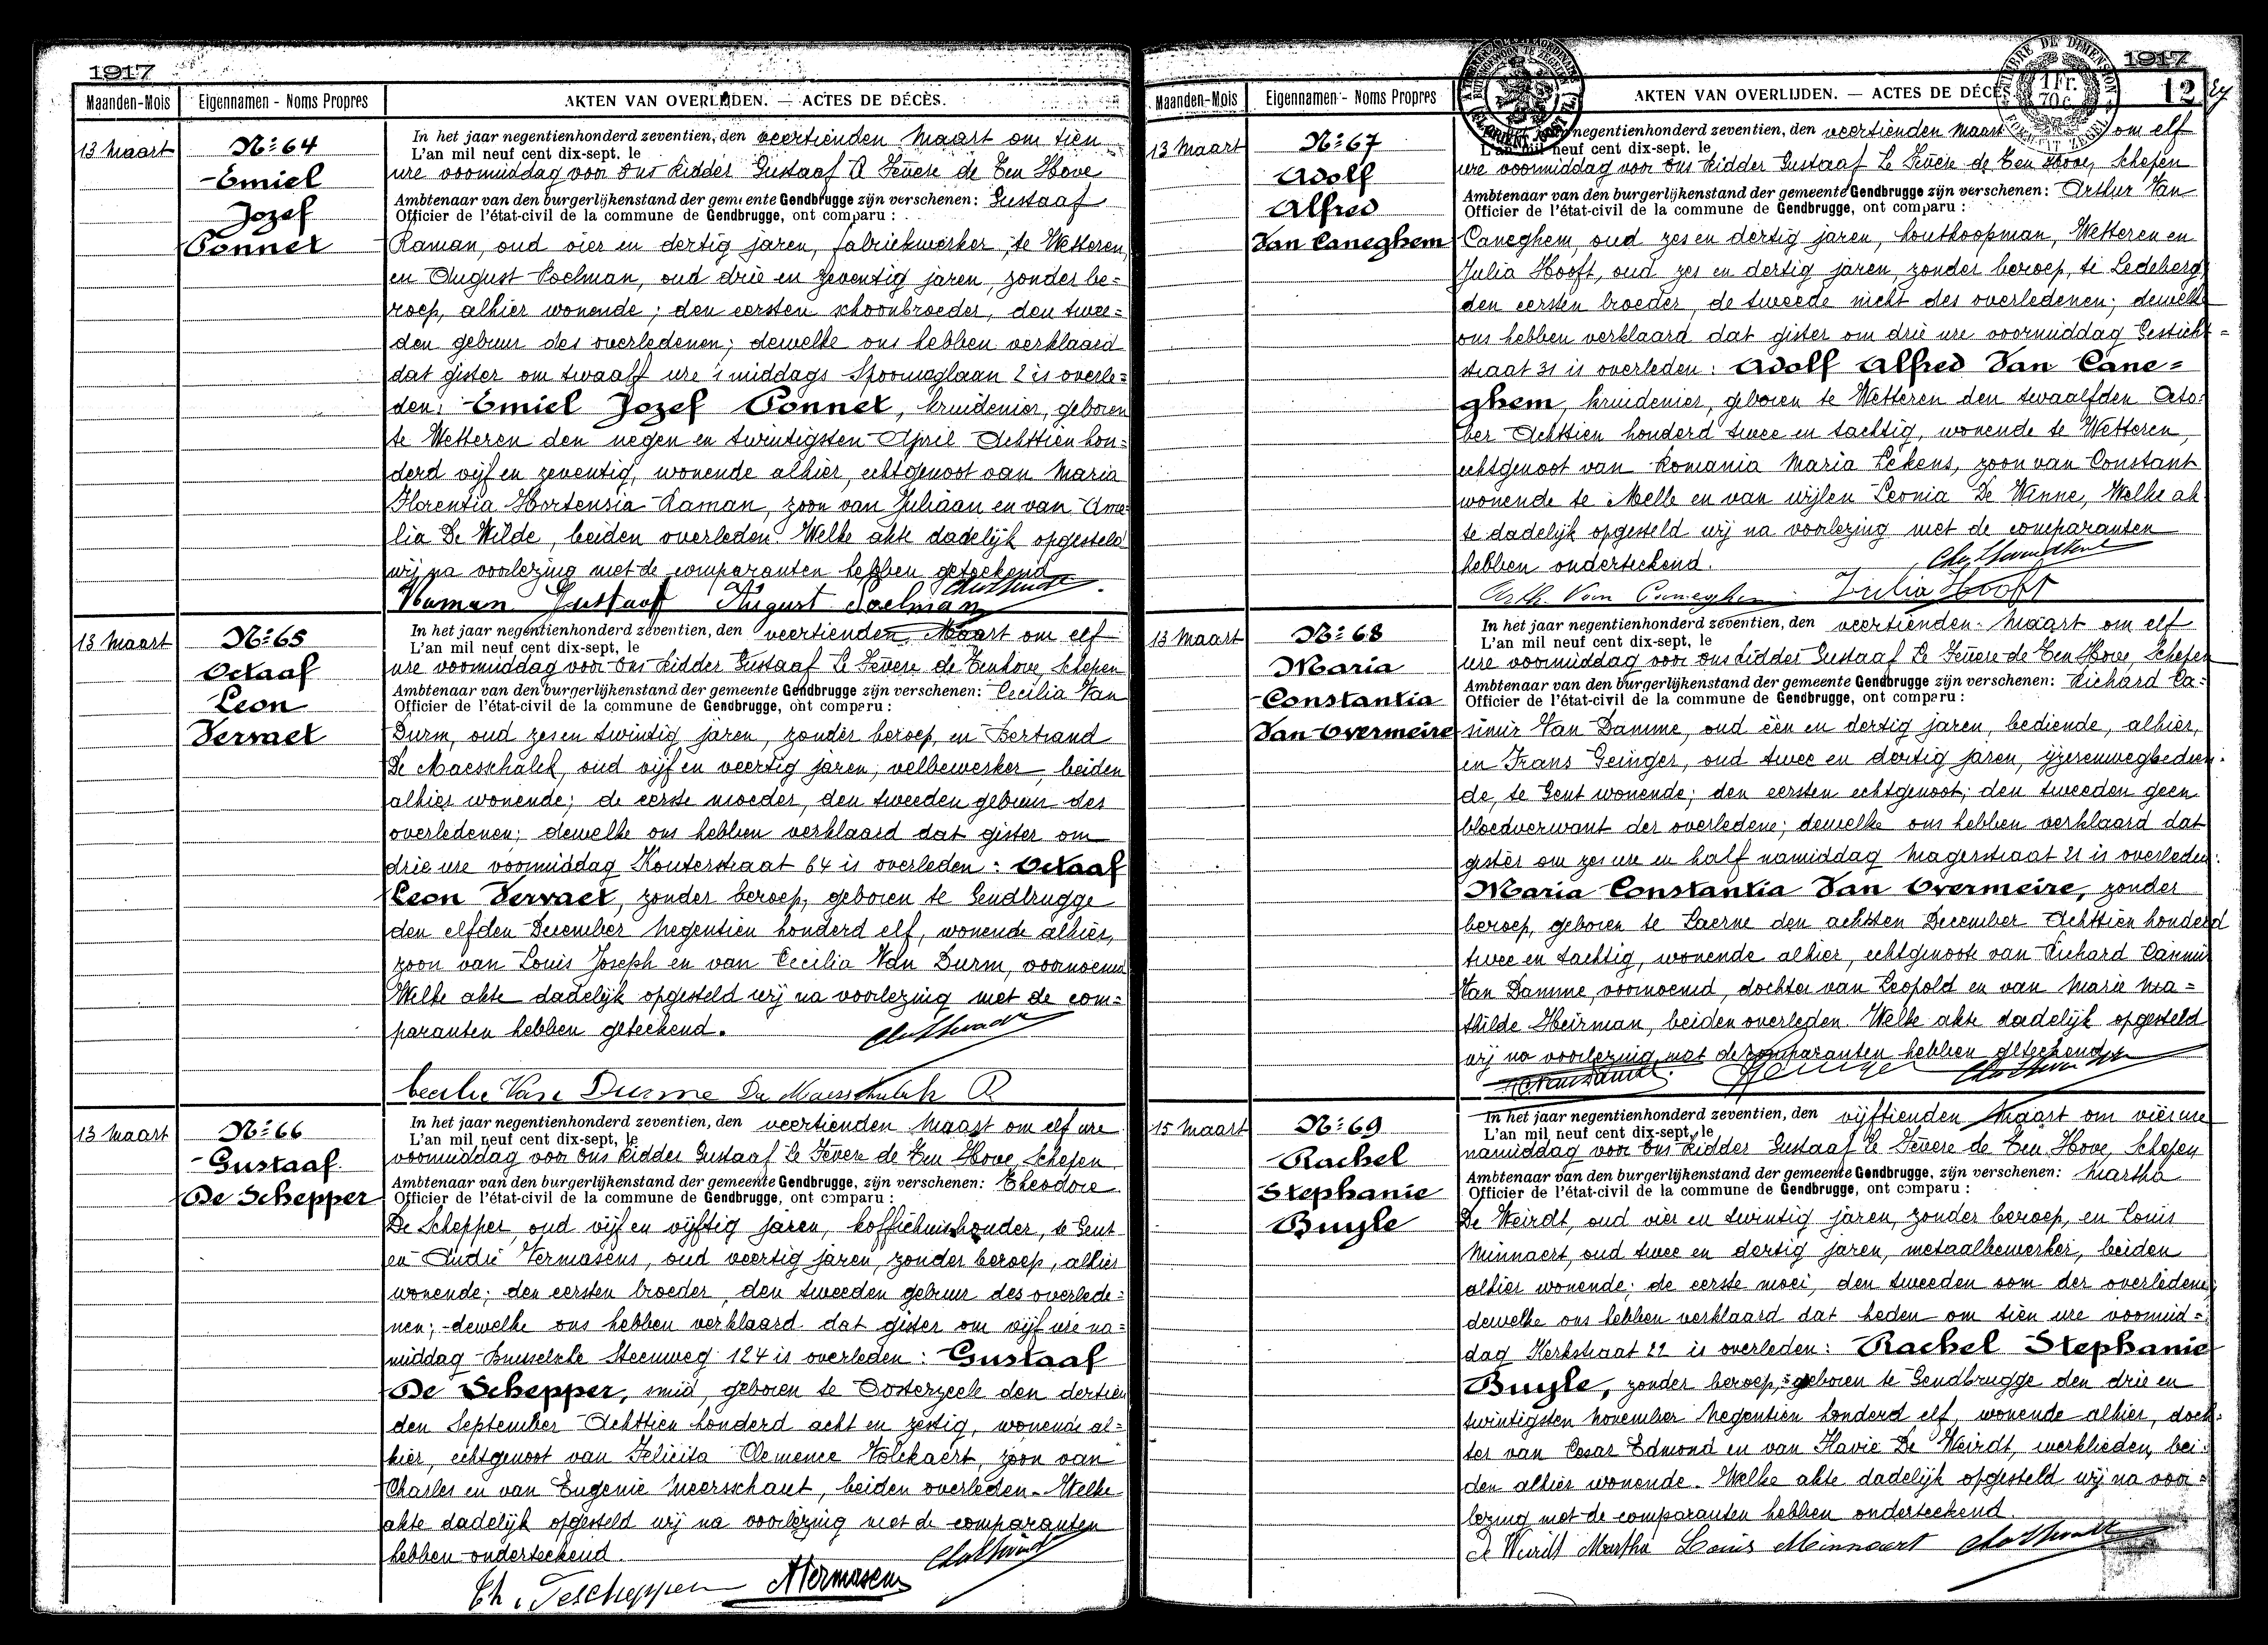 1917
Maanden-Mois
Eigennamen - Noms Propres
AKTEN VAN OVERLIJDEN. — ACTES DE DÉCÈS.
13 Maart
No 64
Emiel
Jozef
Ponnet
In het jaar negentienhonderd zeventien, den veertienden Maart om tien
L'an mil neuf cent dix-sept, le
ure voormiddag voor Ons Ridder Gustaaf de Ten Hove
Ambtenaar van den burgerlijkenstand der gemeente Gendbrugge zijn verschenen: Gustaaf
Officier de l'état-civil de la commune de Gendbrugge, ont comparu :
Raman, oud vier en dertig jaren, fabriekwerker, te Wetteren,
en August Poelman, oud drie en zeventig jaren, zonder be=
roep, alhier wonende; den eersten schoonbroeder, den twee=
den gebuur des overledenen; dewelke ons hebben verklaard
dat gister om twaalf ure 's middags Spoorweglaan 2 is overle=
den: Emiel Jozef Ponnet, kruidenier, geboren
te Wetteren den negen en twintigsten April Achttien hon=
derd vijf en zeventig, wonende alhier, echtgenoot van Maria
Florentia Hortensia Raman, zoon van Juliaan en van Ame=
lia De Wilde, beiden overleden. Welke akte dadelijk opgesteld
wij na voorlezing met de comparanten hebben geteekend
Raman Gustaaf August Poelman
13 Maart
No 65
Octaaf
Leon
Vervaet
In het jaar negentienhonderd zeventien, den veertienden Maart om elf
L'an mil neuf cent dix-sept, le
ure voormiddag voor Ons Ridder Gustaaf Le Fèvere de Tenhove, Schepen
Ambtenaar van den burgerlijkenstand der gemeente Gendbrugge zijn verschenen: Cecilia Van
Officier de l'état-civil de la commune de Gendbrugge, ont comparu :
Durm, oud zes en twintig jaren, zonder beroep, en Bertrand
De Maesschalck, oud vijf en veertig jaren, velbewerker, beiden
alhier wonende; de eerste moeder, den tweeden gebuur des
overledenen; dewelke ons hebben verklaard dat gister om
drie ure voormiddag Kouterstraat 64 is overleden: Octaaf
Leon Vervaet, zonder beroep, geboren te Gendbrugge
den elfden December Negentien honderd elf, wonende alhier,
zoon van Louis Joseph en van Cecilia Van Durm, voornoemd
Welke akte dadelijk opgesteld wij na voorlezing met de com=
paranten hebben geteekend.
Cecilie Van Durme De Maesschalck B
13 Maart
No 66
Gustaaf
De Schepper
In het jaar negentienhonderd zeventien, den veertienden Maart om elf ure
L'an mil neuf cent dix-sept, le
voormiddag voor Ons Ridder Gustaaf Le Fèvere de Ten Hove, Schepen
Ambtenaar van den burgerlijkenstand der gemeente Gendbrugge, zijn verschenen: Theodore
Officier de l'état-civil de la commune de Gendbrugge, ont comparu :
De Schepper, oud vijf en vijftig jaren, koffiehuishouder, te Gent
en André Vermasens, oud veertig jaren, zonder beroep, alhier
wonende; den eersten broeder, den tweeden gebuur des overlede=
nen; dewelke ons hebben verklaard dat gister om vijf ure na=
middag Brusselsche Steenweg 124 is overleden: Gustaaf
De Schepper, smid, geboren te Oosterzeele den dertien
den September Achttien honderd acht en zestig, wonende al=
hier, echtgenoot van Felicita Clemence Volckaert, zoon van
Charles en van Eugenie Meersschaut, beiden overleden. Welke
akte dadelijk opgesteld wij na voorlezing met de comparanten
hebben onderteekend.
Th. Deschepper AVermasen
1917
12
Maanden-Mois
Eigennamen - Noms Propres
AKTEN VAN OVERLIJDEN. — ACTES DE DÉCÈS
13 Maart
No 67
Adolf
Alfred
Van Caneghem
negentienhonderd zeventien, den veertienden Maart om elf
L'an mil neuf cent dix-sept, le
ure voormiddag voor Ons Ridder Gustaaf Le Fèvere de Ten Hove, Schepen
Ambtenaar van den burgerlijkenstand der gemeente Gendbrugge zijn verschenen: Arthur Van
Officier de l'état-civil de la commune de Gendbrugge, ont comparu :
Caneghem, oud zes en dertig jaren, houtkoopman, Wetteren en
Julia Hooft, oud zes en dertig jaren, zonder beroep, te Ledeberg,
den eersten broeder, de tweede nicht des overledenen; dewelke
ons hebben verklaard dat gister om drie ure voormiddag Gesticht=
straat 31 is overleden: Adolf Alfred Van Cane=
ghem, kruidenier, geboren te Wetteren den twaalfden Octo=
ber Achttien honderd twee en tachtig, wonende te Wetteren,
echtgenoot van Romania Maria Lekens, zoon van Constant
wonende te Melle en van wijlen Leonia De Winne, Welke ak
te dadelijk opgesteld wij na voorlezing met de comparanten
hebben onderteekend.
Arth. Van Caneghem Julia Hooft
13 Maart
No 68
Maria
Constantia
Van Overmeire
In het jaar negentienhonderd zeventien, den veertienden Maart om elf
L'an mil neuf cent dix-sept, le
ure voormiddag voor Ons Ridder Gustaaf Le Fèvere de Ten Hove, Schepen
Ambtenaar van den burgerlijkenstand der gemeente Gendbrugge zijn verschenen: Richard Ca=
Officier de l'état-civil de la commune de Gendbrugge, ont comparu :
simir Van Damme, oud één en dertig jaren, bediende, alhier,
en Frans Geinger, oud twee en dertig jaren, ijzerenwegbedien=
de, te Gent wonende; den eersten echtgenoot; den tweeden geen
bloedverwant der overledene; dewelke ons hebben verklaard dat
gister om zes ure en half namiddag Magerstraat 21 is overleden:
Maria Constantia Van Overmeire, zonder
beroep, geboren te Laerne den achtsten December Achttien honderd
twee en tachtig, wonende alhier, echtgenoote van Richard Casimir
Van Damme, voornoemd, dochter van Leopold en van Marie Ma=
thilde Heirman, beiden overleden. Welke akte dadelijk opgesteld
wij na voorlezing met de comparanten hebben geteekend
15 Maart
No 69
Rachel
Stephanie
Buyle
In het jaar negentienhonderd zeventien, den vijftienden Maart om vier ure
L'an mil neuf cent dix-sept, le
namiddag voor Ons Ridder Gustaaf Le Fèvere de Ten Hove, Schepen
Ambtenaar van den burgerlijkenstand der gemeente Gendbrugge, zijn verschenen: Martha
Officier de l'état-civil de la commune de Gendbrugge, ont comparu :
De Weirdt, oud vier en twintig jaren, zonder beroep, en Louis
Minnaert, oud twee en dertig jaren, metaalbewerker, beiden
alhier wonende; de eerste moei, den tweeden oom der overledene;
dewelke ons hebben verklaard dat heden om tien ure voormid=
dag Kerkstraat 22 is overleden: Rachel Stephanie
Buyle, zonder beroep, geboren te Gendbrugge den drie en
twintigsten November Negentien honderd elf, wonende alhier, doch=
ter van Cesar Edmond en van Flavie De Weirdt, werklieden, bei=
den alhier wonende. Welke akte dadelijk opgesteld wij na voor=
lezing met de comparanten hebben onderteekend.
De Weirdt Martha Louis Minnaert